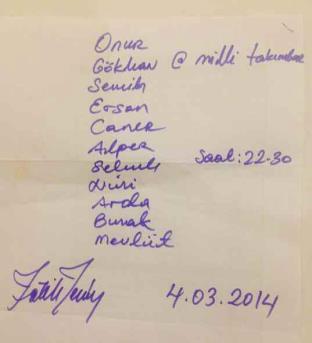 Onur
Gökhan @ milli takımlar
Semih
Ersan
Caner
Alper
Selçuk
Saat: 22-30
Nuri
Arda
Burak
Mevlüt
4.03.2014